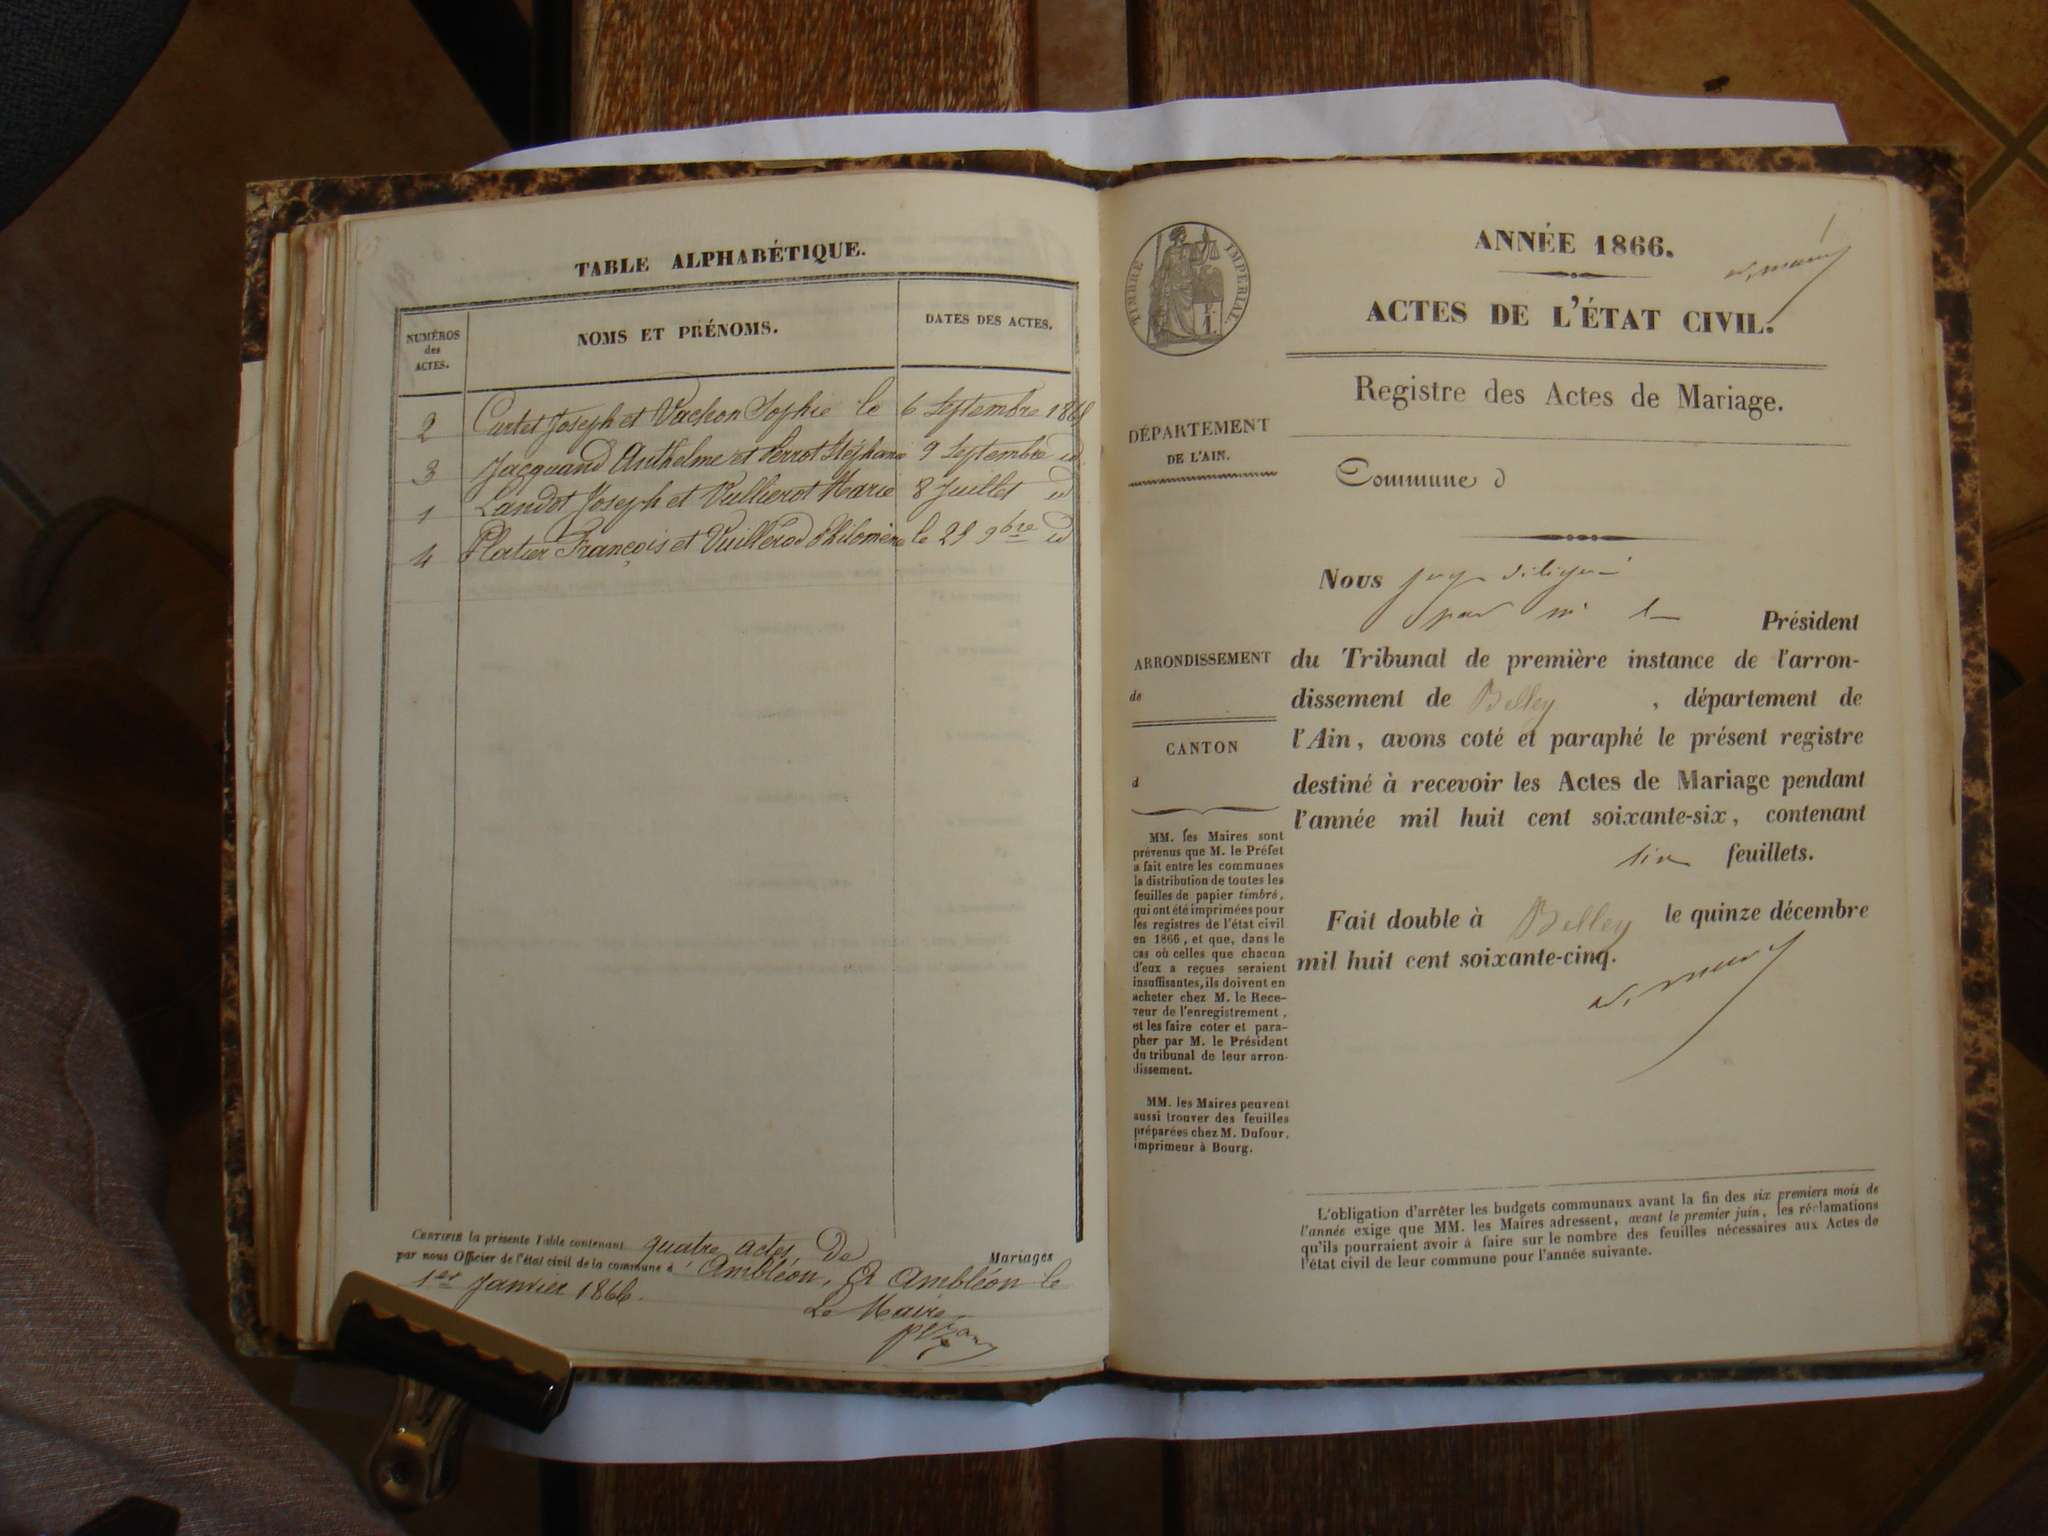 TABLE ALPHABÉTIQUE.
NUMÉROS
des
ACTES.
NOMS ET PRÉNOMS.
DATES DES ACTES.
2 Curtet Joseph et Vachon Sophie le 6 Septembre 1865
3 Jacquand Anthelme et Perrot Stéphanie 9 Septembre id
1 Landot Joseph et Vuillerot Marie 8 Juillet id
4 Platier François et Vuillerod Philomène le 25 9bre id
CERTIFIÉ la présente Table contenant quatre actes De Mariages
par nous Officier de l'état civil de la commune d' Ambléon, A Ambléon le
1er Janvier 1866.
Le Maire
TIMBRE IMPÉRIAL
ANNÉE 1866.
ACTES DE L'ÉTAT CIVIL.
Registre des Actes de Mariage.
DÉPARTEMENT
DE L'AIN.
Commune d
Nous juge délégué
par m. le Président
ARRONDISSEMENT
de
du Tribunal de première instance de l'arron-
dissement de Belley , département de
CANTON
d
l'Ain, avons coté et paraphé le présent registre
destiné à recevoir les Actes de Mariage pendant
l'année mil huit cent soixante-six, contenant
six feuillets.
Fait double à Belley le quinze décembre
mil huit cent soixante-cinq.
MM. les Maires sont
prévenus que M. le Préfet
a fait entre les communes
la distribution de toutes les
feuilles de papier timbré,
qui ont été imprimées pour
les registres de l'état civil
en 1866, et que, dans le
cas où celles que chacun
d'eux a reçues seraient
insuffisantes, ils doivent en
acheter chez M. le Rece-
veur de l'enregistrement,
et les faire coter et para-
pher par M. le Président
du tribunal de leur arron-
dissement.
MM. les Maires peuvent
aussi trouver des feuilles
préparées chez M. Dufour,
imprimeur à Bourg.
L'obligation d'arrêter les budgets communaux avant la fin des six premiers mois de
l'année exige que MM. les Maires adressent, avant le premier juin, les réclamations
qu'ils pourraient avoir à faire sur le nombre des feuilles nécessaires aux Actes de
l'état civil de leur commune pour l'année suivante.